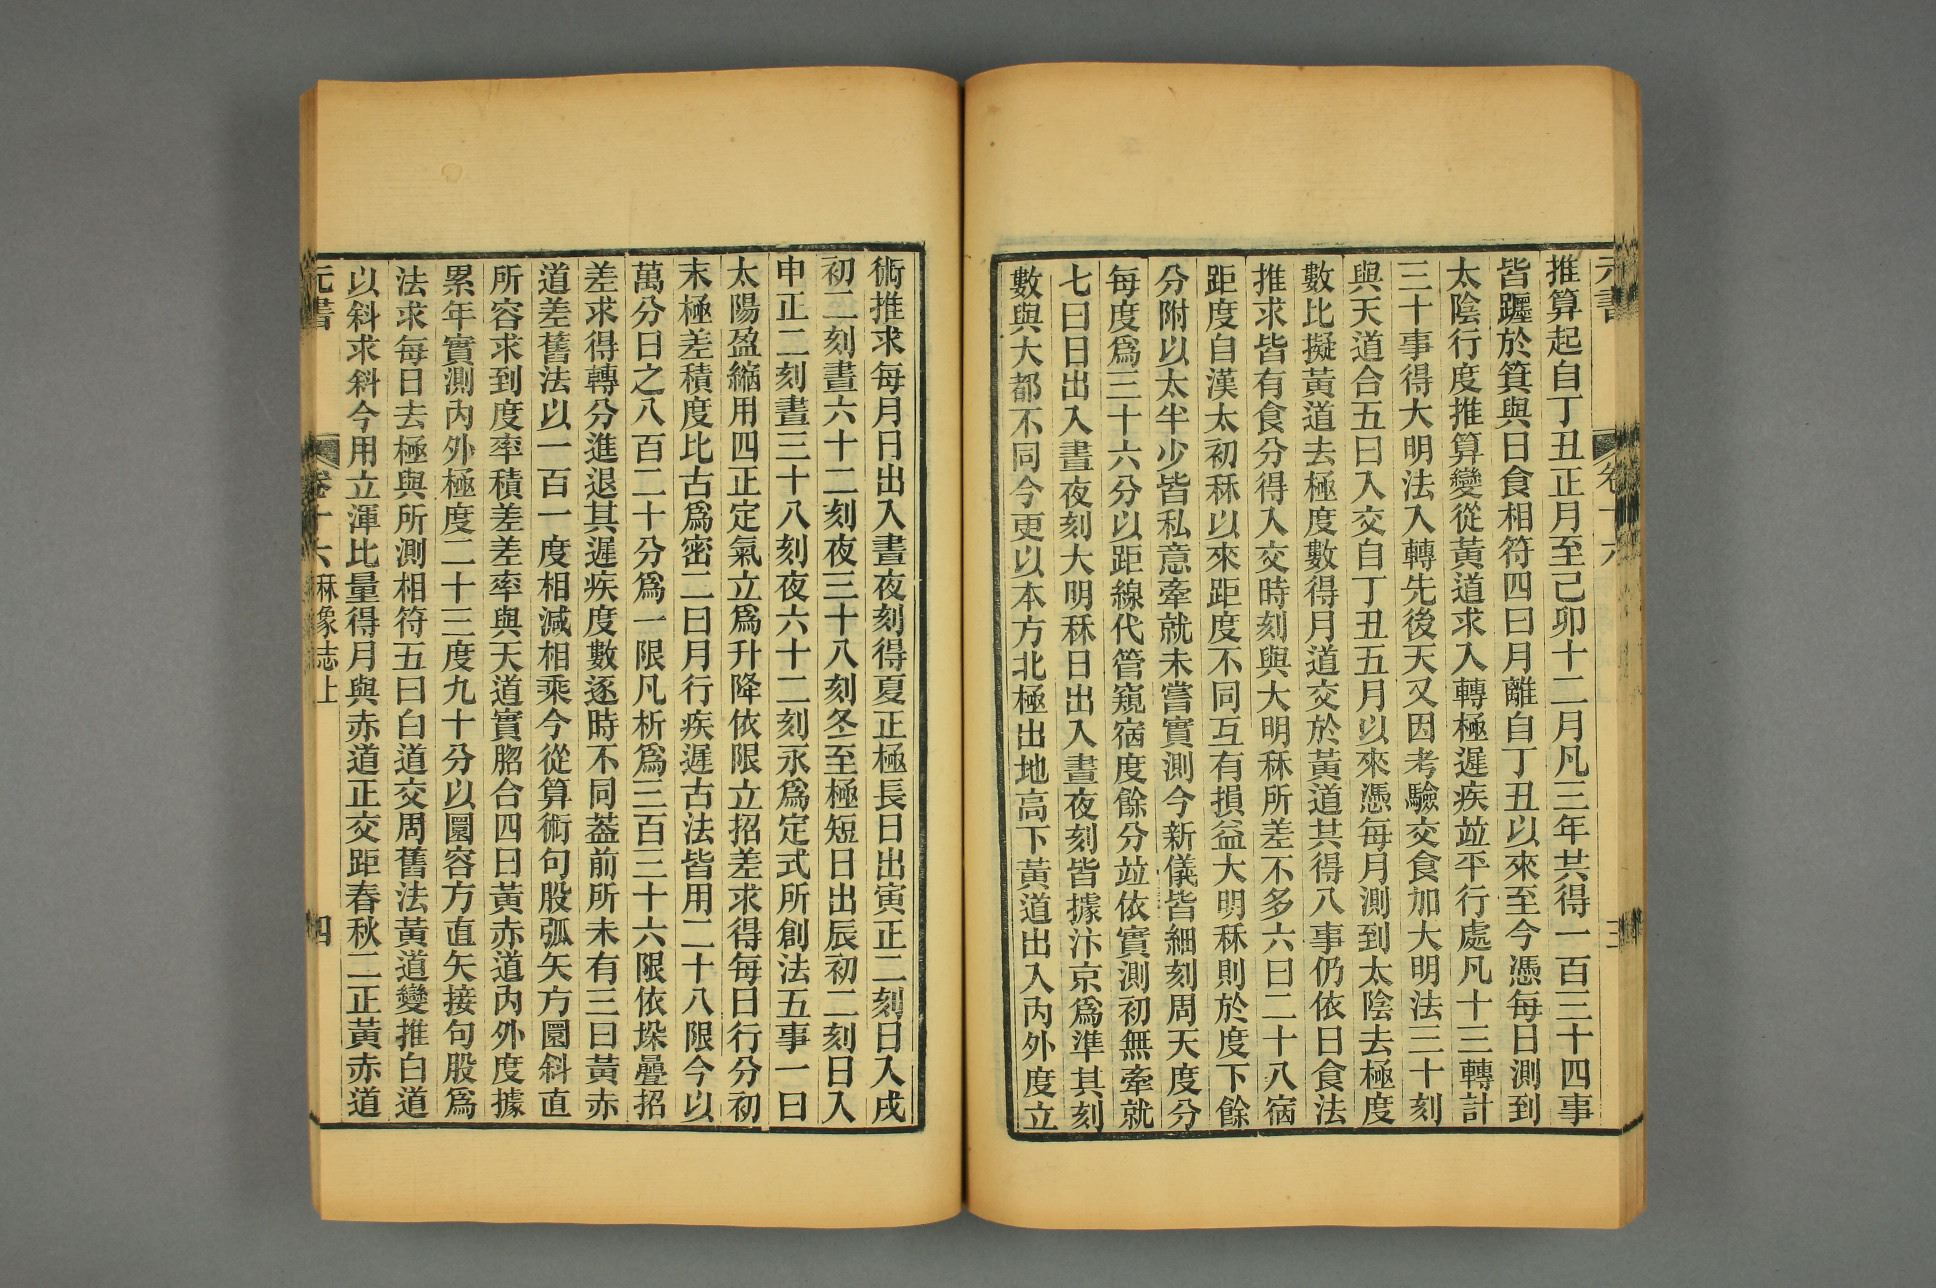 元書
卷十六
三
推算起自丁丑正月至己卯十二月凡三年共得一百三十四事
皆躔於箕與日食相符四曰月離自丁丑以來至今憑每日測到
太陰行度推算變從黃道求入轉極遲疾竝平行處凡十三轉計
三十事得大明法入轉先後天又因考驗交食加大明法三十刻
與天道合五曰入交自丁丑五月以來憑每月測到太陰去極度
數比擬黃道去極度數得月道交於黃道共得八事仍依日食法
推求皆有食分得入交時刻與大明秝所差不多六曰二十八宿
距度自漢太初秝以來距度不同互有損益大明秝則於度下餘
分附以太半少皆私意牽就未嘗實測今新儀皆細刻周天度分
每度爲三十六分以距線代管窺宿度餘分竝依實測初無牽就
七曰日出入晝夜刻大明秝日出入晝夜刻皆據汴京爲準其刻
數與大都不同今更以本方北極出地高下黃道出入內外度立
術推求每月日出入晝夜刻得夏正極長日出寅正二刻日入戌
初二刻晝六十二刻夜三十八刻冬至極短日出辰初二刻日入
申正二刻晝三十八刻夜六十二刻永爲定式所創法五事一曰
太陽盈縮用四正定氣立爲升降依限立招差求得每日行分初
末極差積度比古爲密二曰月行疾遲古法皆用二十八限今以
萬分日之八百二十分爲一限凡析爲三百三十六限依垜疊招
差求得轉分進退其遲疾度數逐時不同葢前所未有三曰黃赤
道差舊法以一百一度相減相乘今從算術句股弧矢方圜斜直
所容求到度率積差差率與天道實脗合四曰黃赤道內外度據
累年實測內外極度二十三度九十分以圜容方直矢接句股爲
法求每日去極與所測相符五曰白道交周舊法黃道變推白道
以斜求斜今用立渾比量得月與赤道正交距春秋二正黃赤道
元書
卷十六秝像志上
四